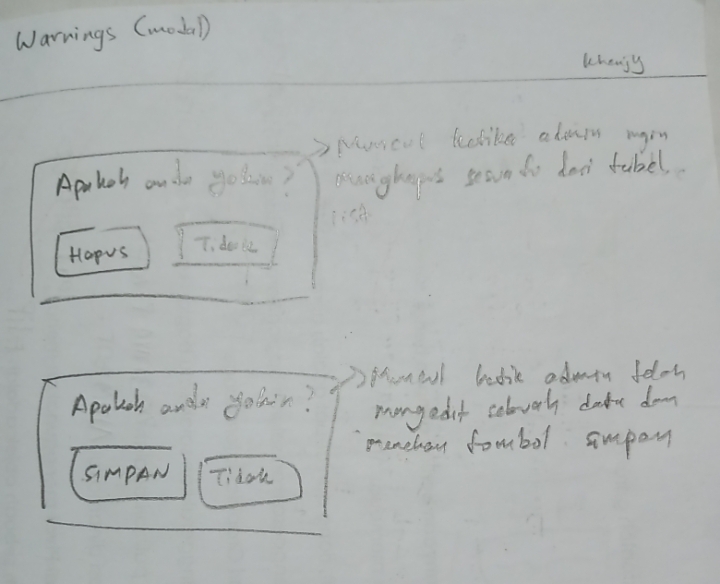 Warnings (modal)
khenjy
Apakah anda yakin?
Hapus
Tidak
> Muncul ketika admin ingin
menghapus sesuatu dari tabel
list
Apakah anda yakin?
SIMPAN
Tidak
> Muncul ketik admin telah
mengedit sebuah data dan
menekan tombol simpan